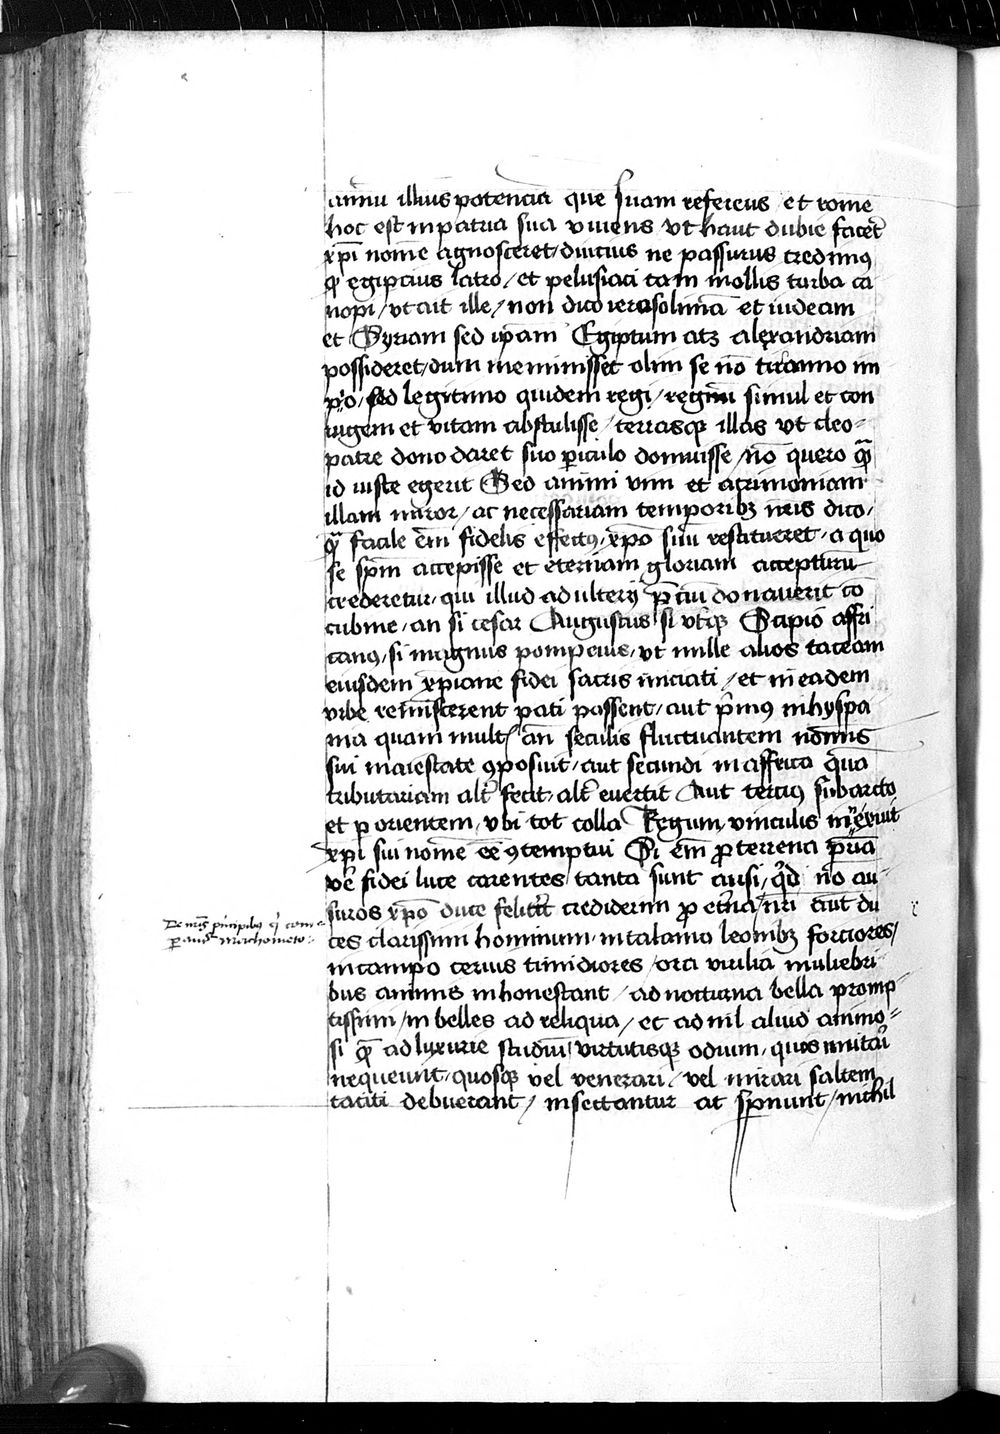 animi illius potencia que suam refereus et rome
hoc est in patria sua viuens vt haut dubie facet̄
xp̄i nomē agnosceret / diucius ne passurus credimꝰ
ꝙ egipcius latro / et pelusiaci tam mollis turba ca
nopi / vt ait ille / non dico ierosolimā et iudeam
et Syriam sed ip̄am Egiptum atꝫ alexandriam
possideret / dum meminisset olim se nō tiranno im
p̄o / sed legitimo quidem regi / regnū simul et con
iugem et vitam abstulisse / terrasqꝫ illas vt cleo-
patre dono daret suo ꝑiculo domuisse / nō quero q̄
id iuste egerit Sed animi vim et acrimoniam
illam miror / ac necessariam temporibꝫ nr̄is dico /
q̄ facile em̄ fidelis effectꝰ / xp̄o suū restitueret / a quo
se sp̄m accepisse et eternam gloriam accepturū
crederetur / qui illud adulterij p̄ciū donauerit cō
cubine / an si cesar Augustus si vterqꝫ Scipio affri
canꝰ / si magnus pompeius / vt mille alios taceam
eiusdem xp̄iane fidei sacris iniciati / et in eadem
vrbe reuiuiscerent pati possent / aut p̄mꝰ in hyspa
nia quam mult̄ an̄ seculis fluctuantem nominis
sui maiestate ꝯposuit / aut secundi in affrica quā
tributariam alt̄ fecit / alt̄ euertit Aut tercius sub arcto
et ꝑ orientem / vbi tot colla Regum / vinculis innexuit
xp̄i sui nomē eē ꝯtemptui Si em̄ ꝓ terrena pr̄ia
ve fidei luce carentes tanta sunt ausi / qd̄ nō au-
suros xp̄o duce felicit̄ crediderim ꝓ et̄na nr̄i aūt du
ces clarissimi hominum / in talamo leonibꝫ forciores /
in campo ceruis timidiores / ora virilia muliebri
bus animis inhonestant / ad nocturna bella promp-
tissimi / in belles ad reliqua / et ad nil aliud animo-
si q̄ ad luxurie studiū virtutisqꝫ odium / quos imitari
nequeunt / quosqꝫ vel venerari / vel mirari saltem
taciti debuerant / insectantur at sp̄nunt / nichil
De nr̄is p̄ncipibꝰ
machometo